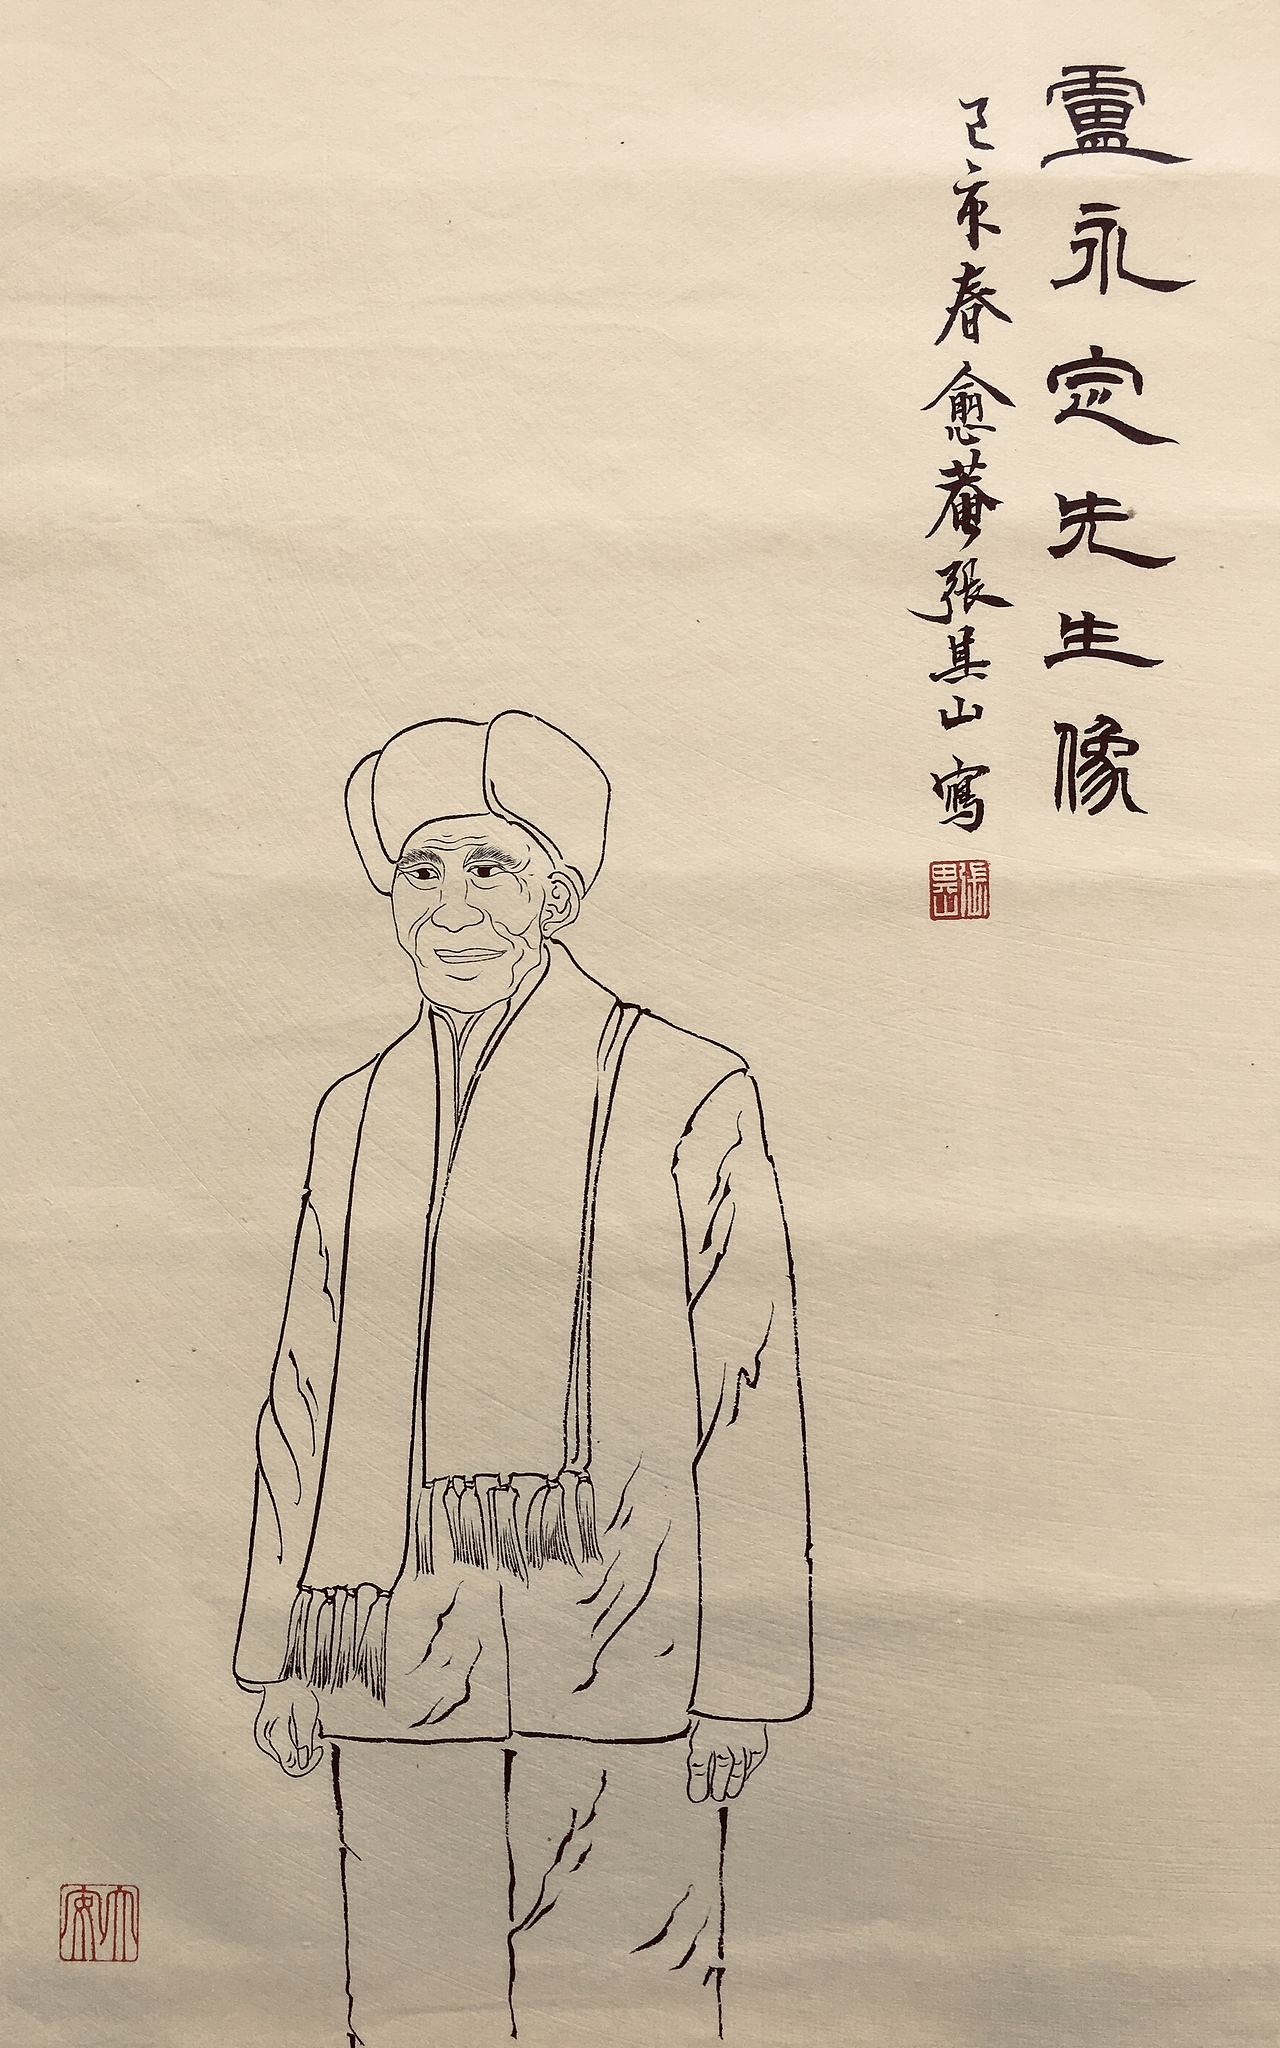 盧永定先生像
己亥春愈菴張其山寫
張其山
大安